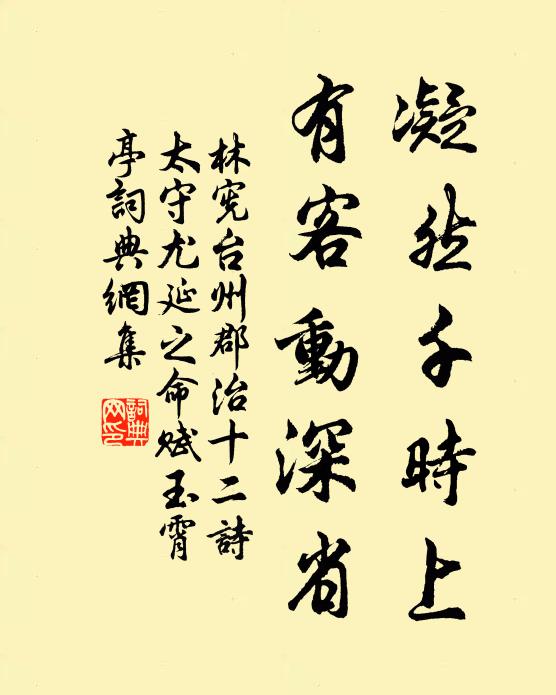 凝然千時上
有客動深省
林宪台州郡治十二詩
太守尤延之命賦玉霄
亭詞典網集
詞典網印